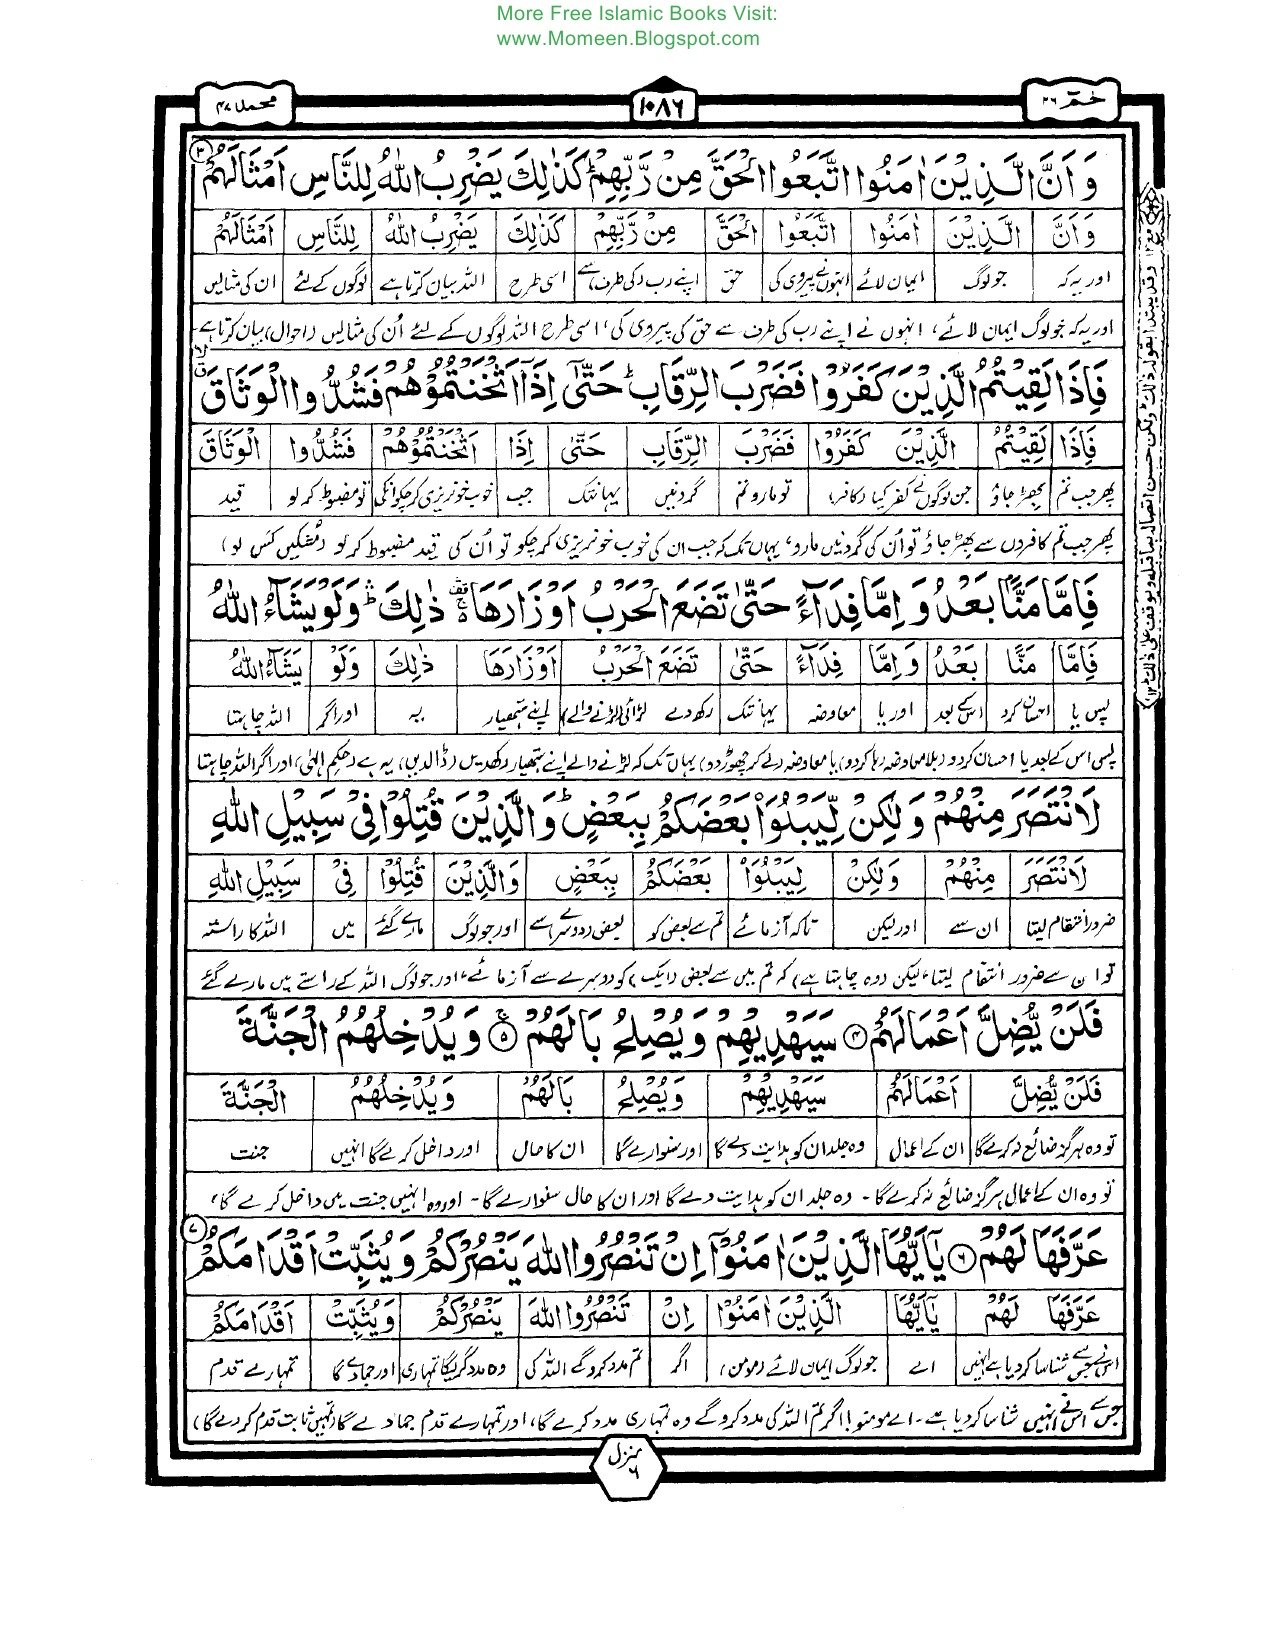 More Free Islamic Books Visit:
www.Momeen.Blogspot.com
حٰمٓ ۲۶
۱۰۸۶
محمد ۴۷
وَاَنَّ الَّذِیْنَ اٰمَنُوا اتَّبَعُوا الْحَقَّ مِنْ رَّبِّهِمْ ؕ كَذٰلِكَ یَضْرِبُ اللّٰهُ لِلنَّاسِ اَمْثَالَهُمْ ۳
وَاَنَّ الَّذِیْنَ اٰمَنُوا اتَّبَعُوا الْحَقَّ مِنْ رَّبِّهِمْ كَذٰلِكَ یَضْرِبُ اللّٰهُ لِلنَّاسِ اَمْثَالَهُمْ
اور یہ کہ جو لوگ ایمان لائے انہوں نے پیروی کی حق اپنے رب (کی طرف) سے اسی طرح اللہ بیان کرتا ہے لوگوں کے لئے ان کی مثالیں
اور یہ کہ جو لوگ ایمان لائے، انہوں نے اپنے رب کی طرف سے حق کی پیروی کی، اسی طرح اللہ لوگوں کے لئے اُن کی مثالیں (احوال) بیان کرتا ہے
فَاِذَا لَقِیْتُمُ الَّذِیْنَ كَفَرُوْا فَضَرْبَ الرِّقَابِ ؕ حَتّٰۤی اِذَاۤ اَثْخَنْتُمُوْهُمْ فَشُدُّوا الْوَثَاقَ
فَاِذَا لَقِیْتُمُ الَّذِیْنَ كَفَرُوْا فَضَرْبَ الرِّقَابِ حَتّٰی اِذَا اَثْخَنْتُمُوْهُمْ فَشُدُّوا الْوَثَاقَ
پھر جب تم بھڑ جاؤ جن لوگوں نے کفر کیا (کافر) تو مارو تم گردنیں یہانتک جب خوب خونریزی کر چکو انکی تو مضبوط کر لو قید
پھر جب تم کافروں سے بھڑ جاؤ تو اُن کی گردنیں مارو، یہاں تک کہ جب ان کی خوب خونریزی کر چکو تو اُن کی قید مضبوط کر لو (مُشکیں کَس لو)
فَاِمَّا مَنًّۢا بَعْدُ وَاِمَّا فِدَآءً حَتّٰی تَضَعَ الْحَرْبُ اَوْزَارَهَا ذٰلِكَ ؕ وَلَوْ یَشَآءُ اللّٰهُ
فَاِمَّا مَنًّا بَعْدُ وَاِمَّا فِدَآءً حَتّٰی تَضَعَ الْحَرْبُ اَوْزَارَهَا ذٰلِكَ وَلَوْ یَشَآءُ اللّٰهُ
پس یا احسان کرو اس کے بعد اور یا معاوضہ یہانتک رکھ دے لڑائی (لڑنے والے) اپنے ہتھیار یہ اور اگر اللہ چاہتا
پس اس کے بعد یا احسان کر دو (بلا معاوضہ رہا کر دو) یا معاوضہ (لے کر چھوڑ دو) یہاں تک کہ لڑنے والے اپنے ہتھیار رکھدیں (ڈالدیں)، یہ ہے (حکم الٰہی) اور اگر اللہ چاہتا
لَانْتَصَرَ مِنْهُمْ وَلٰكِنْ لِّیَبْلُوَا۟ بَعْضَكُمْ بِبَعْضٍ ؕ وَالَّذِیْنَ قُتِلُوْا فِیْ سَبِیْلِ اللّٰهِ
لَانْتَصَرَ مِنْهُمْ وَلٰكِنْ لِّیَبْلُوَا۟ بَعْضَكُمْ بِبَعْضٍ وَالَّذِیْنَ قُتِلُوْا فِیْ سَبِیْلِ اللّٰهِ
ضرور انتقام لیتا ان سے اور لیکن تاکہ آزمائے تم سے بعض کو بعض (دوسرے) سے اور جو لوگ مارے گئے میں اللہ کا راستہ
تو ان سے ضرور انتقام لیتا، لیکن (وہ چاہتا ہے) کہ تم میں سے بعض (ایک) کو دوسرے سے آزمائے، اور جو لوگ اللہ کے راستے میں مارے گئے
فَلَنْ یُّضِلَّ اَعْمَالَهُمْ ۴ سَیَهْدِیْهِمْ وَیُصْلِحُ بَالَهُمْ ۵ وَیُدْخِلُهُمُ الْجَنَّةَ
فَلَنْ یُّضِلَّ اَعْمَالَهُمْ سَیَهْدِیْهِمْ وَیُصْلِحُ بَالَهُمْ وَیُدْخِلُهُمُ الْجَنَّةَ
تو وہ ہرگز ضائع نہ کرے گا ان کے اعمال وہ جلد ان کو ہدایت دے گا اور سنوارے گا ان کا حال اور داخل کرے گا انہیں جنت
تو وہ ان کے اعمال ہرگز ضائع نہ کرے گا۔ وہ جلد ان کو ہدایت دے گا اور ان کا حال سنوارے گا۔ اور وہ انہیں جنت میں داخل کرے گا،
عَرَّفَهَا لَهُمْ ۶ یٰۤاَیُّهَا الَّذِیْنَ اٰمَنُوْۤا اِنْ تَنْصُرُوا اللّٰهَ یَنْصُرْكُمْ وَیُثَبِّتْ اَقْدَامَكُمْ ۷
عَرَّفَهَا لَهُمْ یٰاَیُّهَا الَّذِیْنَ اٰمَنُوْا اِنْ تَنْصُرُوا اللّٰهَ یَنْصُرْكُمْ وَیُثَبِّتْ اَقْدَامَكُمْ
اس نے جس سے شناسا کر دیا ہے انہیں اے جو لوگ ایمان لائے (مومن) اگر تم مدد کرو گے اللہ کی وہ مدد کریگا تمہاری اور جما دے گا تمہارے قدم
جس سے اس نے انہیں شناسا کر دیا ہے۔ اے مومنو! اگر تم اللہ کی مدد کرو گے وہ تمہاری مدد کرے گا، اور تمہارے قدم جما دے گا (تمہیں ثابت قدم کر دے گا)
منزل ۶